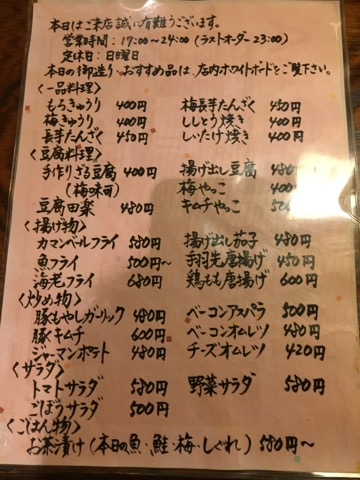 本日はご来店誠に有難うございます。
営業時間：17:00～24:00(ラストオーダー23:00)
定休日：日曜日
本日の御造り・おすすめ品は、店内ホワイトボードをご覧下さい。
〈一品料理〉
もろきゅうり 400円 梅長芋たんざく 450円
梅きゅうり 400円 ししとう焼き 400円
長芋たんざく 450円 しいたけ焼き 400円
〈豆腐料理〉
手作りざる豆腐 400円 揚げ出し豆腐 480円
(梅味噌) 梅やっこ 400円
豆腐田楽 480円 キムチやっこ
〈揚げ物〉
カマンベールフライ 580円 揚げ出し茄子 480円
魚フライ 500円～ 手羽先唐揚げ 450円
海老フライ 680円 鶏もも唐揚げ 600円
〈炒め物〉
豚もやしガーリック 480円 ベーコンアスパラ 500円
豚キムチ 600円 ベーコンオムレツ 480円
ジャーマンポテト 480円 チーズオムレツ 420円
〈サラダ〉
トマトサラダ 580円 野菜サラダ 580円
ごぼうサラダ 500円
〈ごはん物〉
お茶漬け(本日の魚・鮭・梅・しぐれ) 580円～